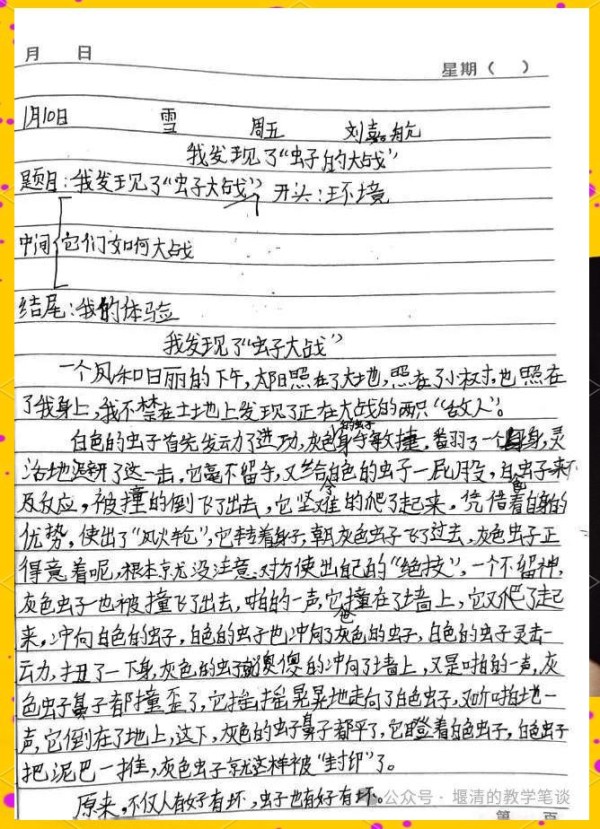 月 日
星期( )
1月10日 雪 周五 刘嘉航
我发现了“虫子的大战”
题目:我发现了“虫子大战” 开头:环境
中间 它们如何大战
结尾:我的体验
我发现了“虫子大战”
一个风和日丽的下午,太阳照在了大地,照在了小树,也照在
了我身上,我不禁在土地上发现了正在大战的两只“敌人”。
白色的虫子首先发动了进攻,灰色的虫子身手敏捷,翻了一个身,灵
活地避开了这一击,它毫不留手,又给白色的虫子一屁股,白虫子来不
及反应,被撞的倒飞了出去,它坚难的爬了起来,凭借着自身的
优势,使出了“风火轮”,它转着身子,朝灰色虫子飞了过去,灰色虫子正
得意着呢,根本就没注意对方使出自己的“绝技”,一个不留神,
灰色虫子也被撞飞了出去,啪的一声,它撞在了墙上,它又爬了起
来,冲向白色的虫子,白色的虫子也冲向了灰色的虫子,白色的虫子灵击一
动,扭了一下身,灰色的虫子傻傻的冲向了墙上,又是啪的一声,灰
色虫子鼻子都撞歪了,它摇摇晃晃地走向了白色虫子,又听啪地一
声,它倒在了地上,这下,灰色的虫子鼻子都平了,它瞪着白色虫子,白色虫子
把泥巴一推,灰色虫子就这样被“封印”了。
原来,不仅人有好有坏,虫子也有好有坏。
公众号·堰清的教学笔谈
第 页